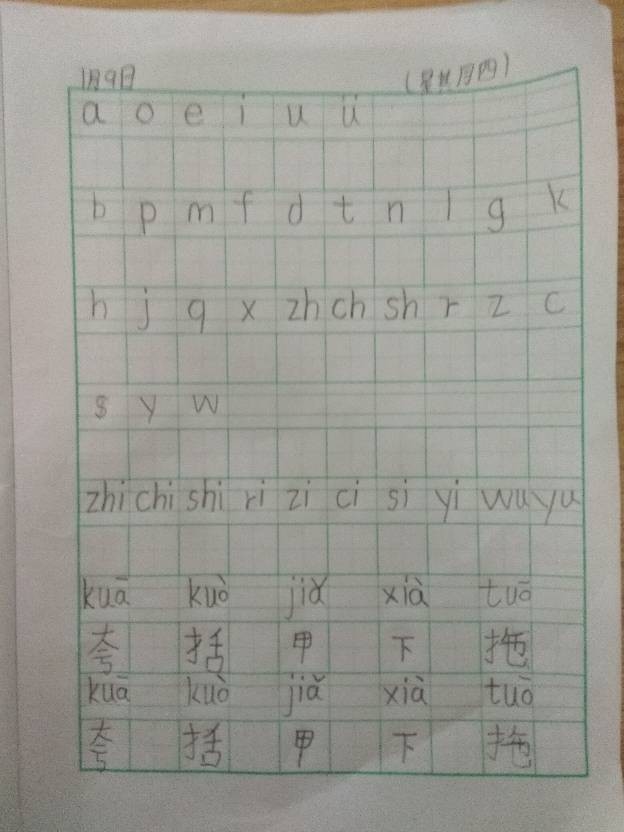 1月9日 (星期四)
a o e i u ü
b p m f d t n l g k
h j q x zh ch sh r z c
s y w
zhi chi shi ri zi ci si yi wu yu
kuā kuò jiǎ xià tuō
夸 括 甲 下 拖
kuā kuò jiǎ xià tuō
夸 括 甲 下 拖